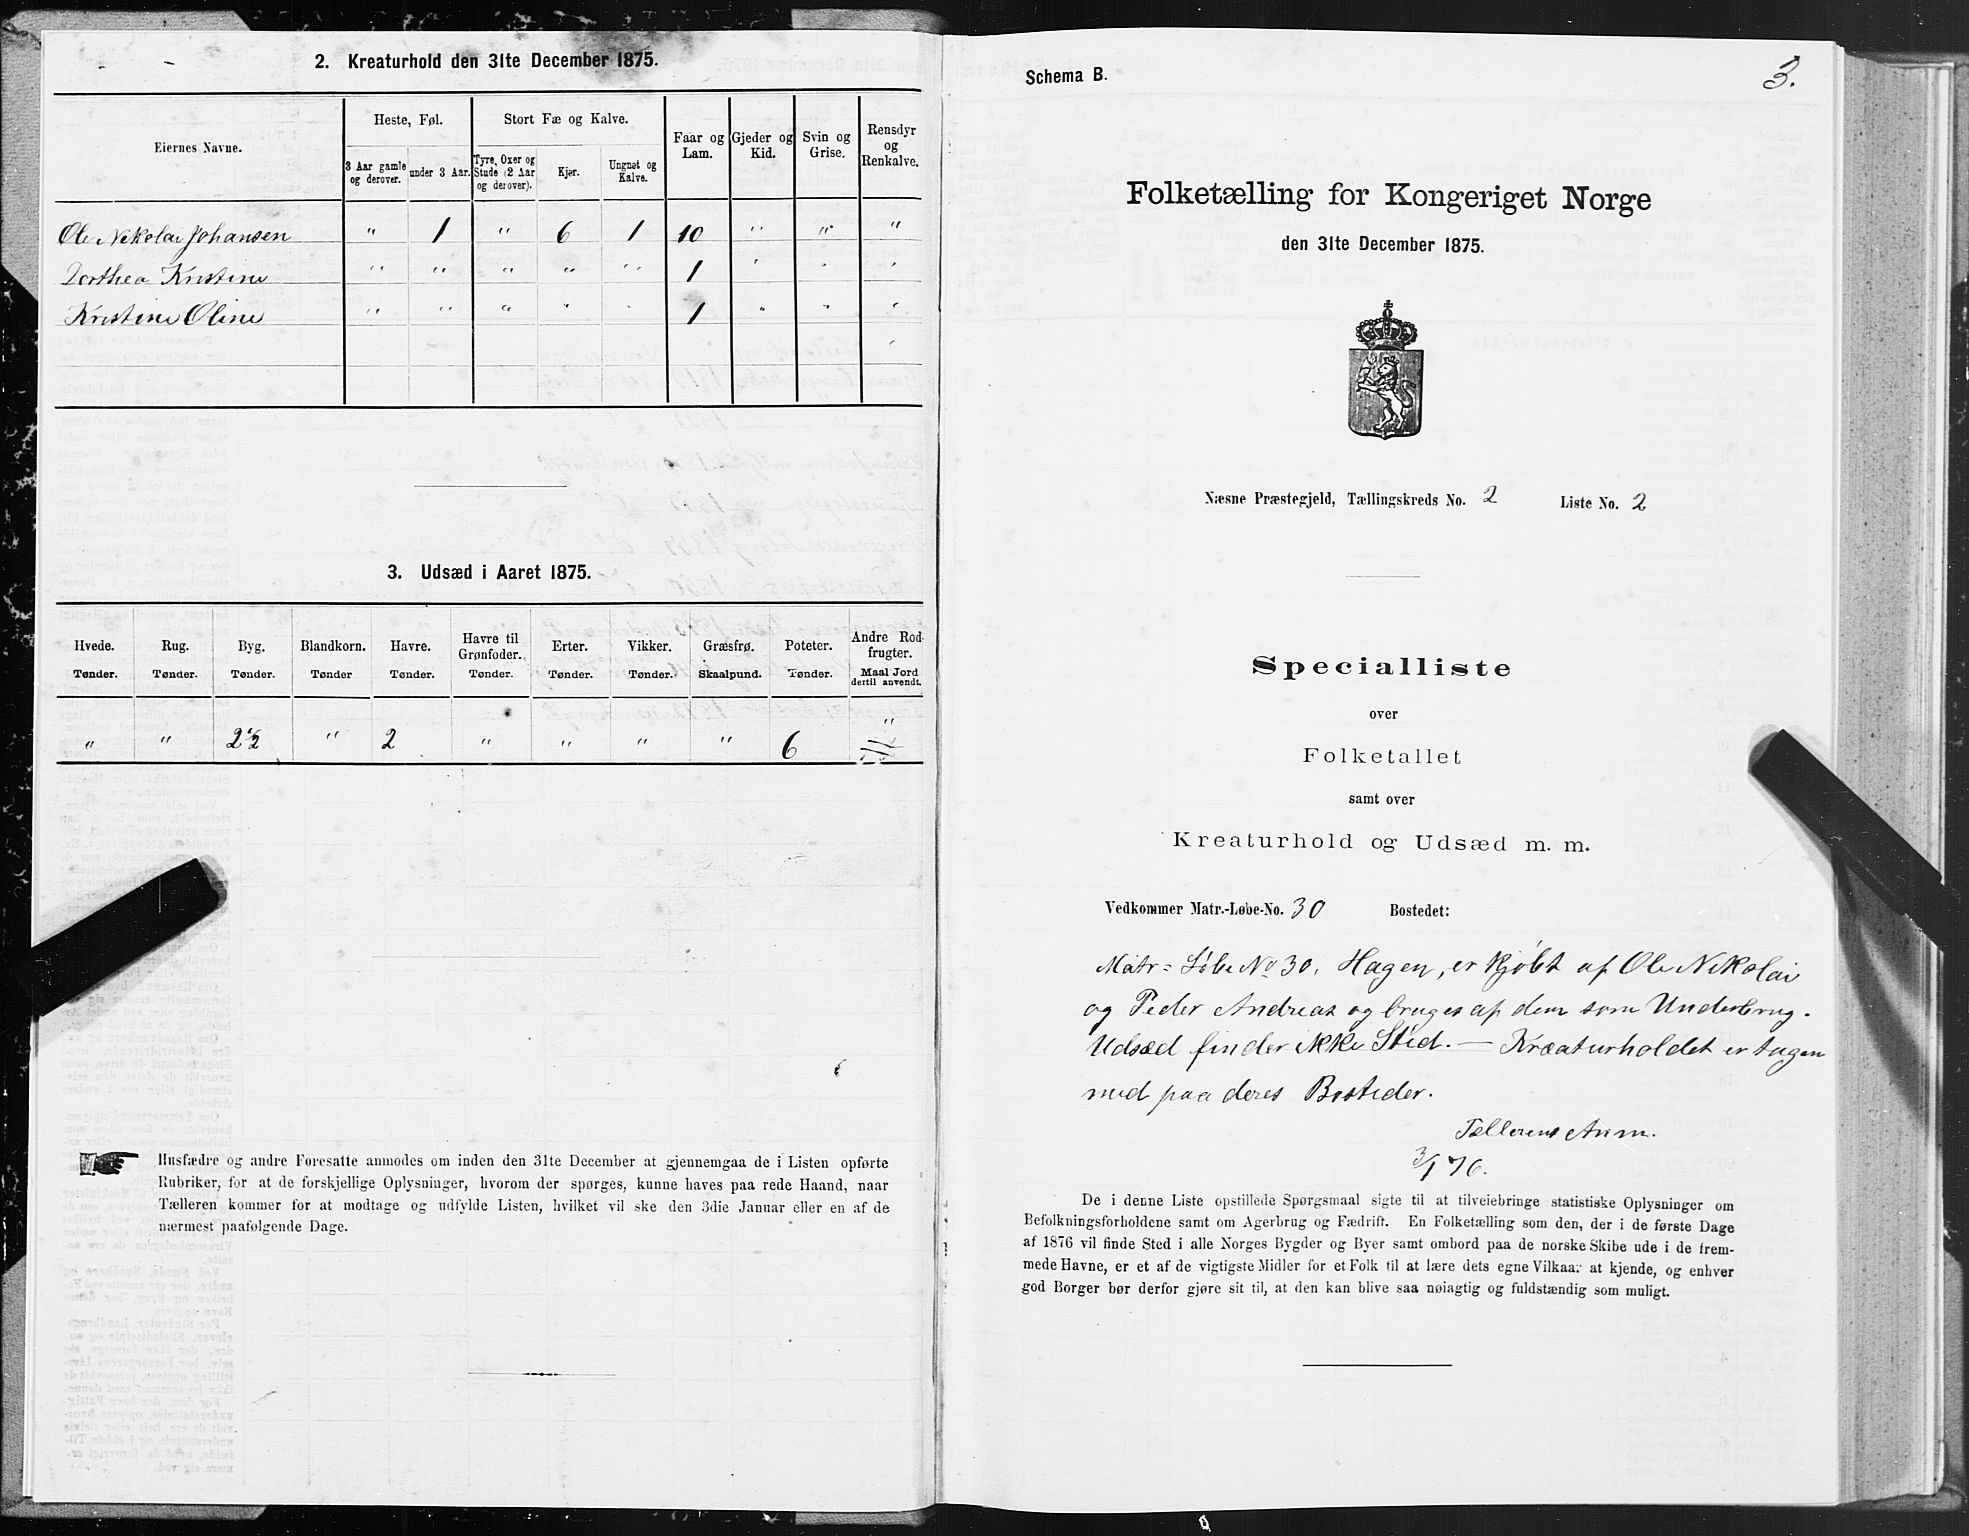 2. Kreaturhold den 31te December 1875.
Eiernes Navne.
Heste, Føl.
Stort Fæ og Kalve.
Faar og Lam.
Gjeder og Kid.
Svin og Grise.
Rensdyr og Renkalve.
3 Aar gamle og derover.
under 3 Aar.
Tyre, Oxer og Stude (2 Aar og derover).
Kjør.
Ungnøt og Kalve.
Ole Nikolai Johansen " 1 " 6 1 10 " " "
Dorthea Kristine " " " " " 1 " " "
Kristine Oline " " " " " 1 " " "
3. Udsæd i Aaret 1875.
Hvede. Rug. Byg. Blandkorn. Havre. Havre til Grønfoder. Erter. Vikker. Græsfrø. Poteter. Andre Rodfrugter.
Tønder. Tønder. Tønder. Tønder Tønder. Tønder. Tønder. Tønder. Skaalpund. Tønder. Maal Jord dertil anvendt.
" " 2½ " 2 " " " " 6 "
Husfædre og andre Foresatte anmodes om inden den 31te December at gjennemgaa de i Listen opførte
Rubriker, for at de forskjellige Oplysninger, hvorom der spørges, kunne haves paa rede Haand, naar
Tælleren kommer for at modtage og udfylde Listen, hvilket vil ske den 3die Januar eller en af de
nærmest paafølgende Dage.
Schema B.
3.
Folketælling for Kongeriget Norge
den 31te December 1875.
Næsne Præstegjeld, Tællingskreds No. 2 Liste No. 2
Specialliste
over
Folketallet
samt over
Kreaturhold og Udsæd m. m.
Vedkommer Matr.-Løbe-No. 30 Bostedet:
Matr= Løbe No 30, Hagen, er kjøbt af Ole Nikolai
og Peder Andreas og bruges af dem som Underbrug.
Udsæd finder ikke Sted. — Kræaturholdet er tagen
med paa deres Bosteder.
Tællerens Anm.
3/1 76.
De i denne Liste opstillede Spørgsmaal sigte til at tilveiebringe statistiske Oplysninger om
Befolkningsforholdene samt om Agerbrug og Fædrift. En Folketælling som den, der i de første Dage
af 1876 vil finde Sted i alle Norges Bygder og Byer samt ombord paa de norske Skibe ude i de frem-
mede Havne, er et af de vigtigste Midler for et Folk til at lære dets egne Vilkaar at kjende, og enhver
god Borger bør derfor gjøre sit til, at den kan blive saa nøiagtig og fuldstændig som muligt.